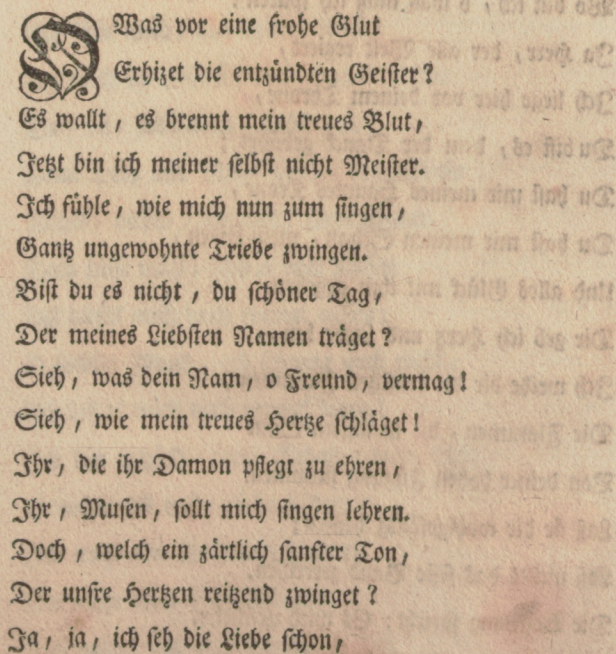 OWas vor eine frohe Glut
Erhizet die entzündten Geister?
Es wallt, es brennt mein treues Blut,
Jetzt bin ich meiner selbst nicht Meister.
Ich fühle, wie mich nun zum singen,
Gantz ungewohnte Triebe zwingen.
Bist du es nicht, du schöner Tag,
Der meines Liebsten Namen träget?
Sieh, was dein Nam, o Freund, vermag!
Sieh, wie mein treues Hertze schläget!
Ihr, die ihr Damon pflegt zu ehren,
Ihr, Musen, sollt mich singen lehren.
Doch, welch ein zärtlich sanfter Ton,
Der unsre Hertzen reitzend zwinget?
Ja, ja, ich seh die Liebe schon,